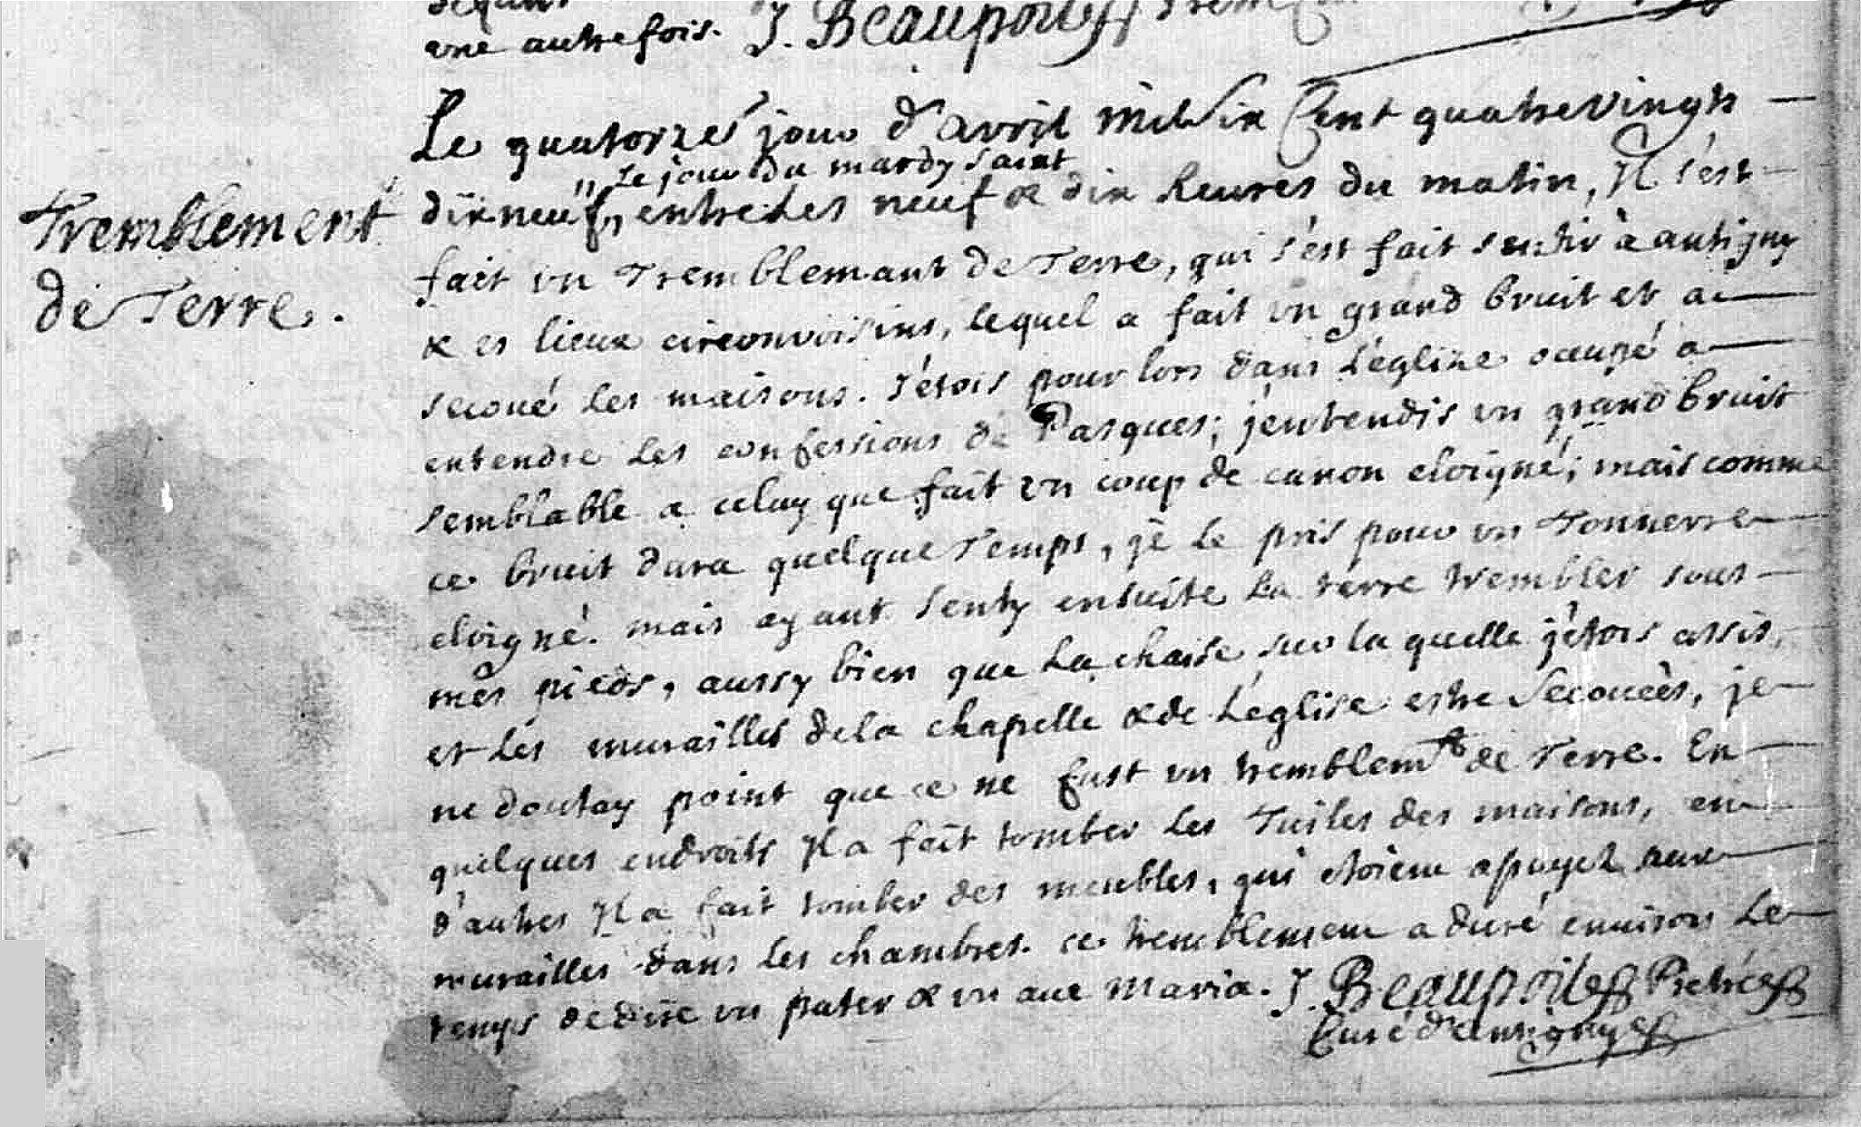 une autrefois. J. Beaupoil
Le quatorze jour d'avril mil six Cent quatrevingts
le jour du mardy saint
Tremblement
dixneuf, entre les neuf & dix heures du matin, Il s'est
fait un Tremblemant de Terre, qui s'est fait sentir à antigny
de Terre.
& es lieux circonvoisins, lequel a fait un grand bruit et a
secoué les maisons. J'étois pour lors dans L'églize occupé a
entendre les confessions de Pasques; j'entendis un grand bruit
semblable a celuy que fait un coup de canon eloigné; mais comme
ce bruit dura quelque Temps, je le pris pour un Tonnerre
eloigné. mais ayant senty ensuite la terre trembler sous
mes pieds, aussy bien que la chaise sur la quelle j'étois assis,
et les murailles de la chapelle & de L'église estre secouées, je
ne doutay point que ce ne fust un tremblemt de Terre. En
quelques endroits Il a fait tomber les Tuiles des maisons, en
d'autres Il a fait tomber des meubles, qui étoient apuyez aux
murailles dans les chambres. ce tremblement a duré environ le
temps de dire un pater & un ave Maria. J. Beaupoil Pretre
Curé d'antigny